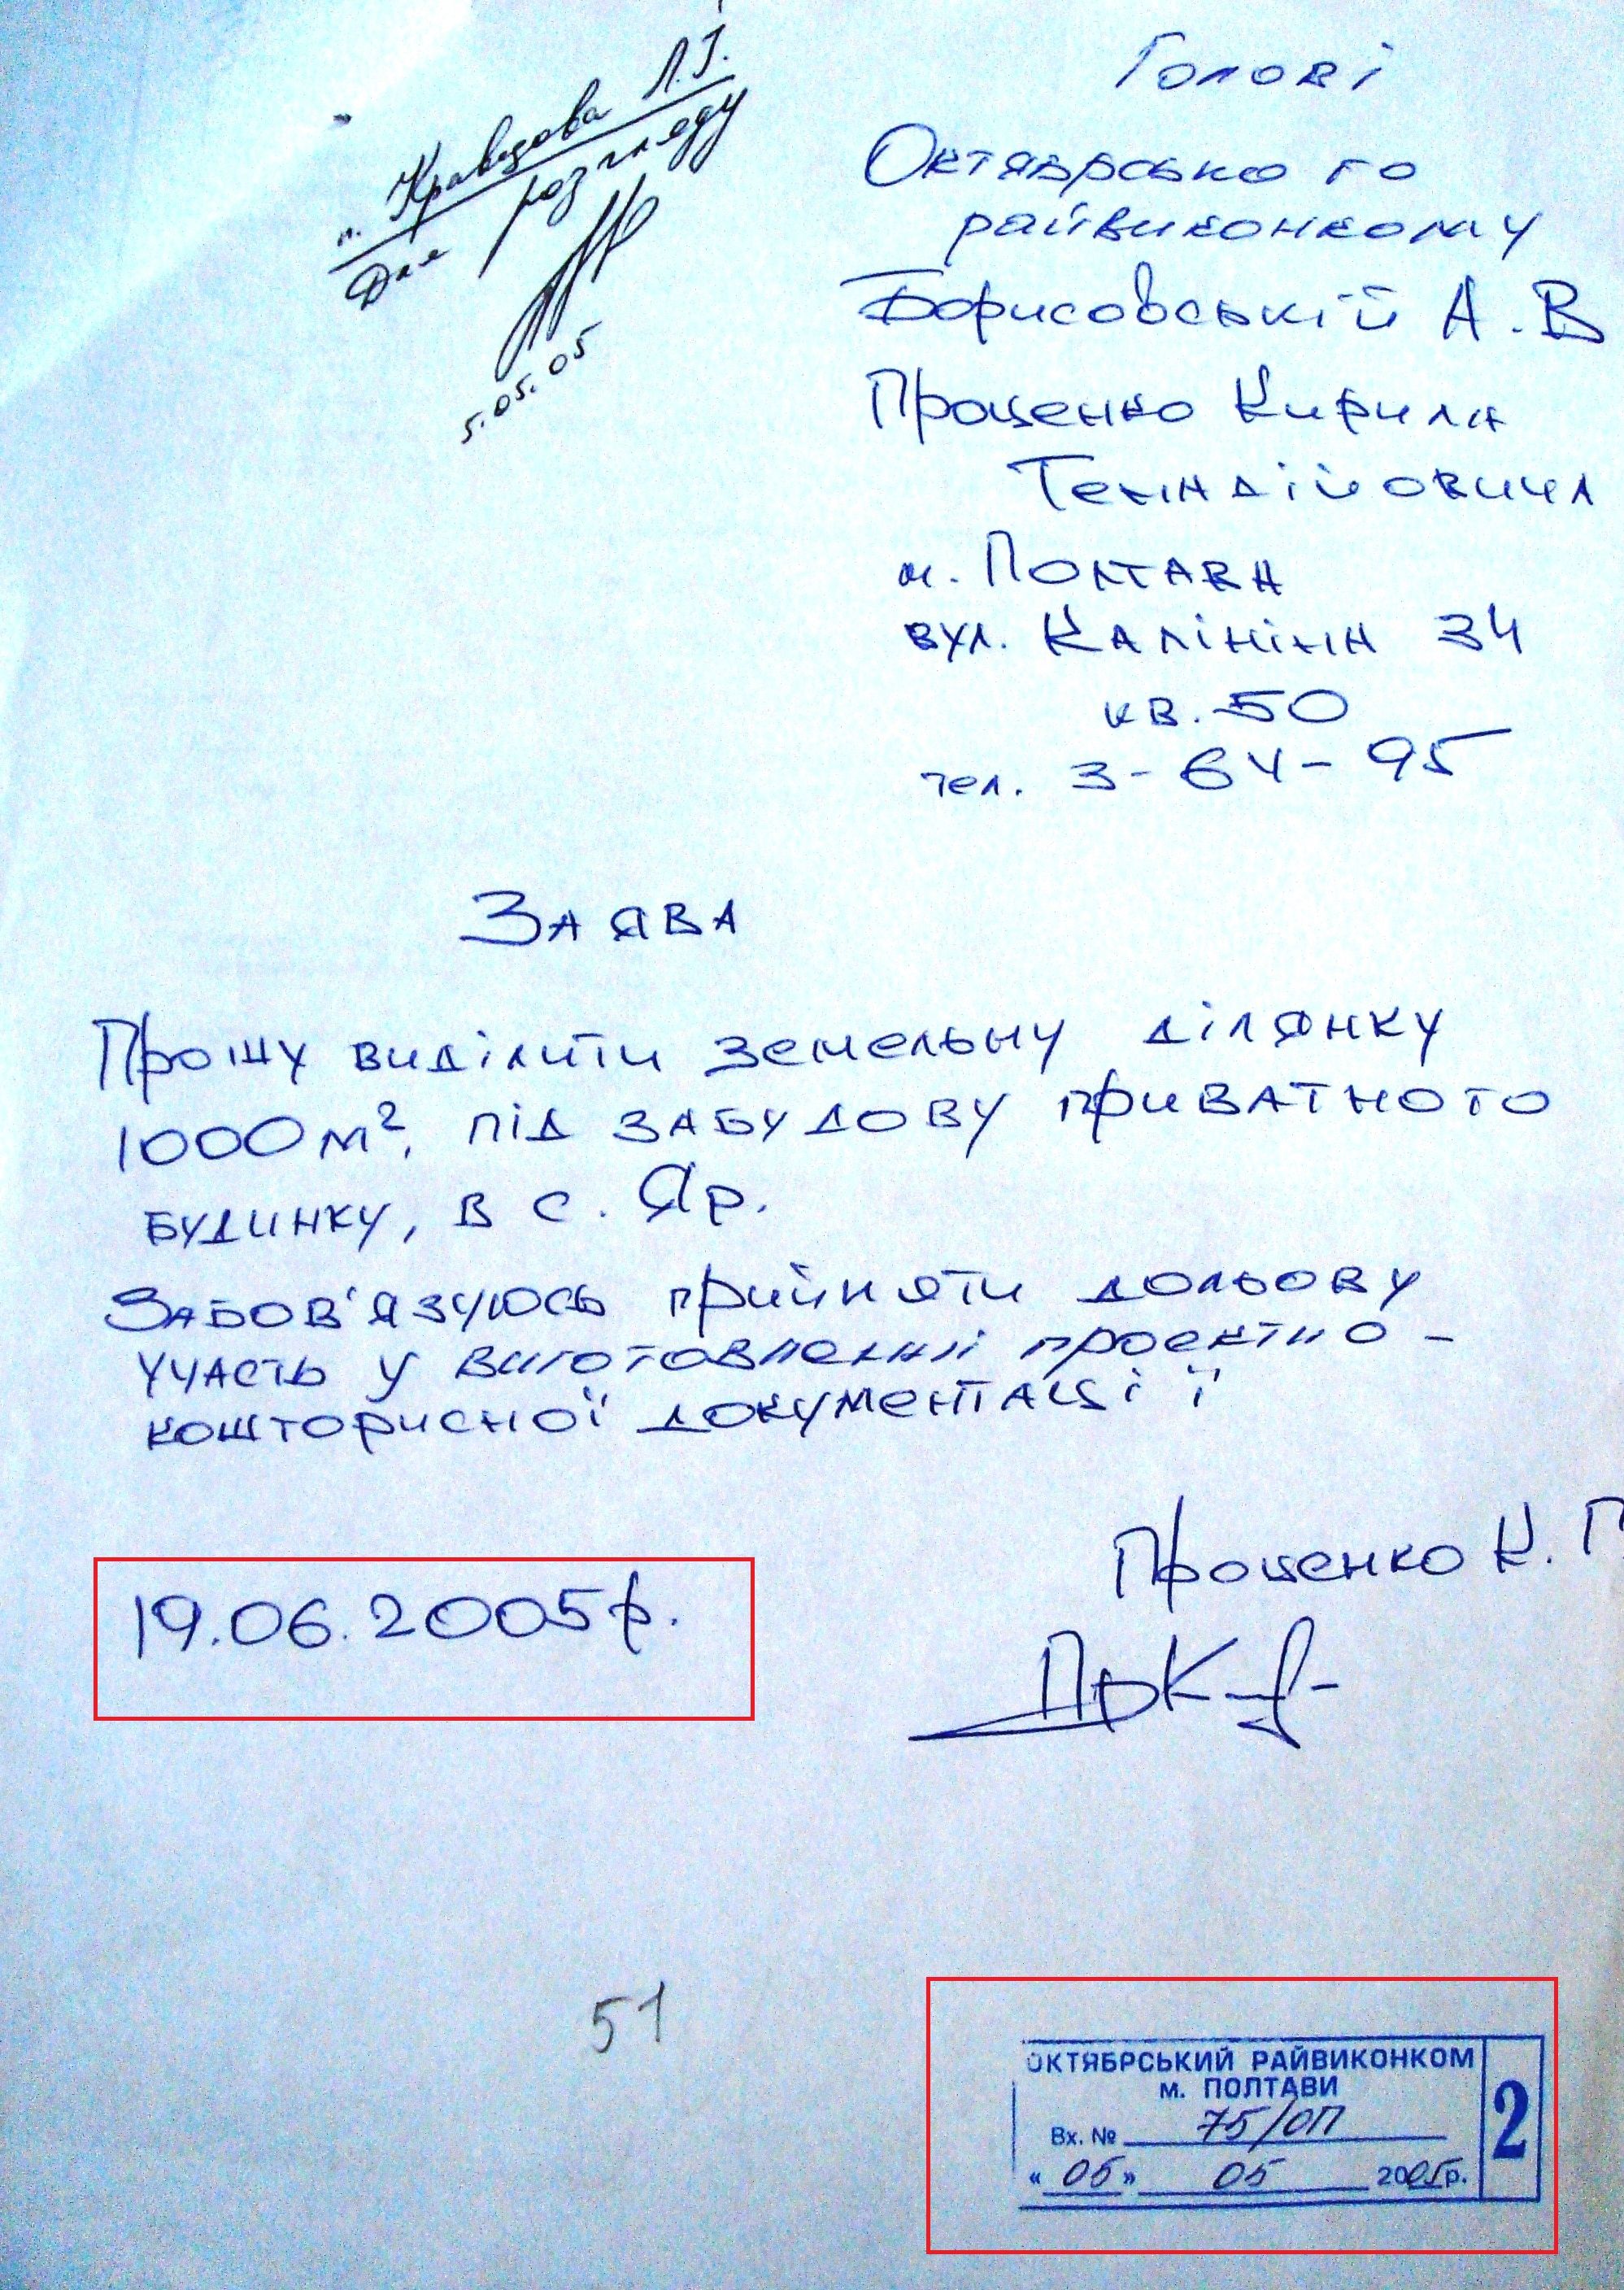 п. Кравцова Л.І.
Для розгляду
5.05.05
Голові
Октябрського
райвиконкому
Борисовській А.В
Проценко Кирила
Генндійовича
м. Полтава
вул. Калініна 34
кв. 50
тел. 3-64-95
Заява
Прошу виділити земельну ділянку
1000 м², під забудову приватного
будинку, в с. Яр.
Забов'язуюсь прийняти дольову
участь у виготовленні проектно-
кошторисної документації
Проценко К. Г
19.06.2005р.
51
ОКТЯБРСЬКИЙ РАЙВИКОНКОМ
м. ПОЛТАВИ
Вх. № 75/ОП
« 05 » 05 2005р.
2